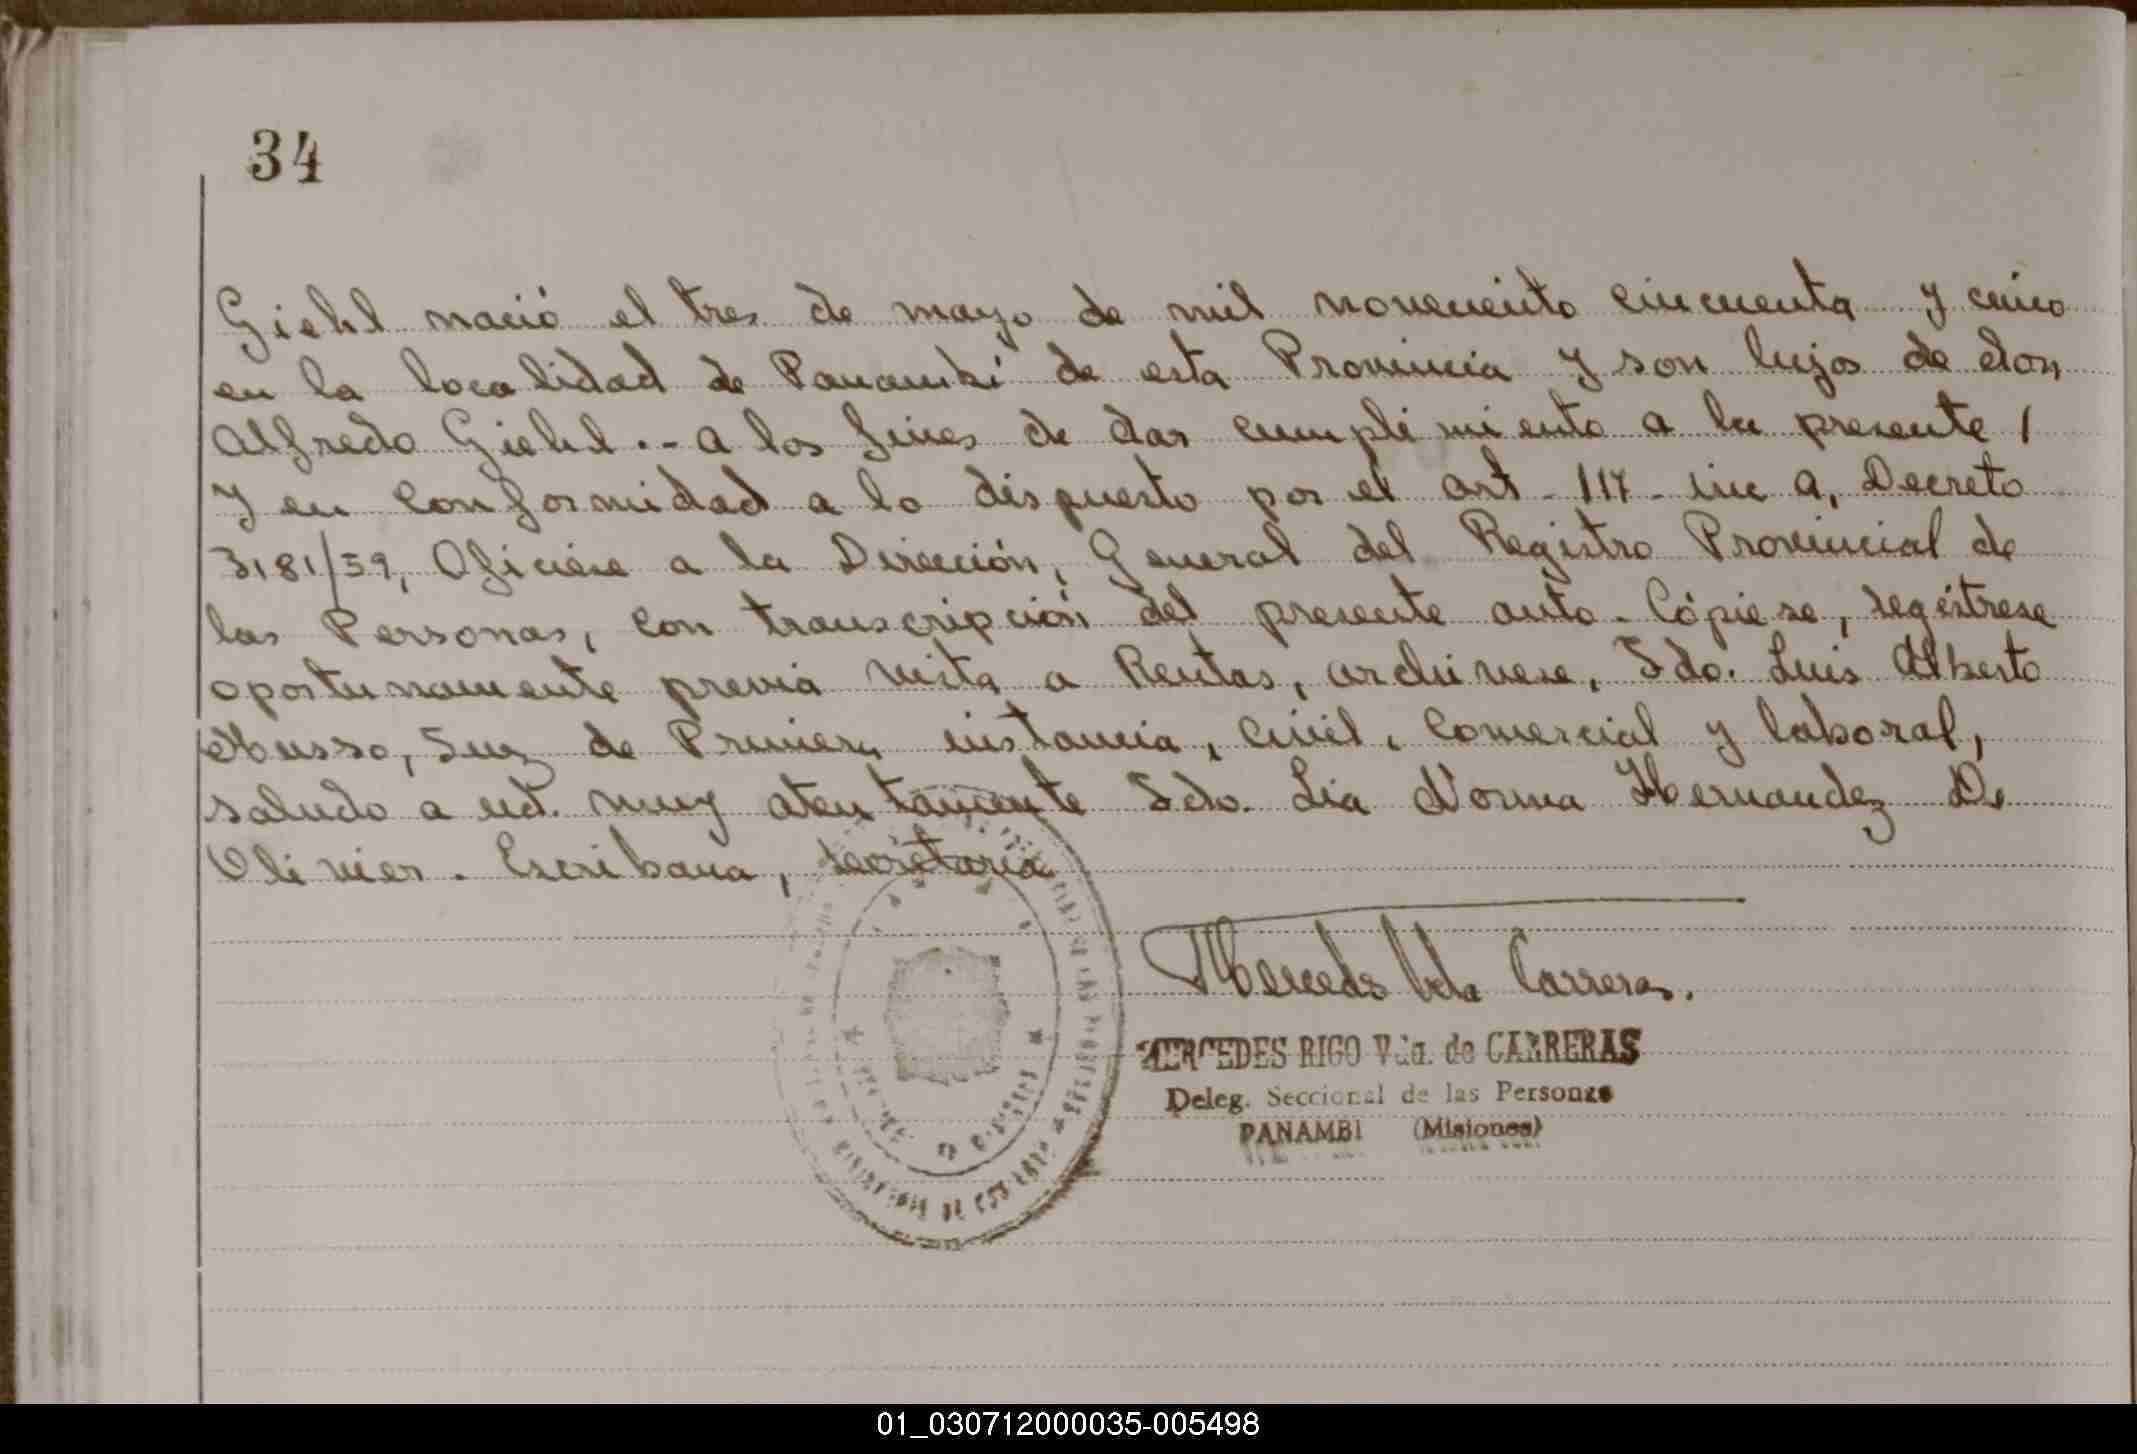 34
Giehl nació el tres de mayo de mil noveciento cincuenta y cinco
en la localidad de Panambí de esta Provincia y son hijos de don
Alfredo Giehl.- a los fines de dar cumplimiento a la presente /
y en conformidad a lo dispuesto por el art - 117 - inc a, Decreto
3181/59, Oficiese a la Dirección, General del Registro Provincial de
las Personas, con transcripción del presente auto - Cópiese, regístrese
oportunamente previa vista a Rentas, archivese, Fdo. Luis Alberto
Musso, Juez de Primera instancia, Civil, Comercial y laboral,
saludo a ud. muy atentamente Fdo. Lia Norma Hernandez De
Olivier. Escribana, secretaria
Mercedes Vda Carreras.
MERCEDES RIGO Vda. de CARRERAS
Deleg. Seccional de las Personas
PANAMBI (Misiones)
01_030712000035-005498